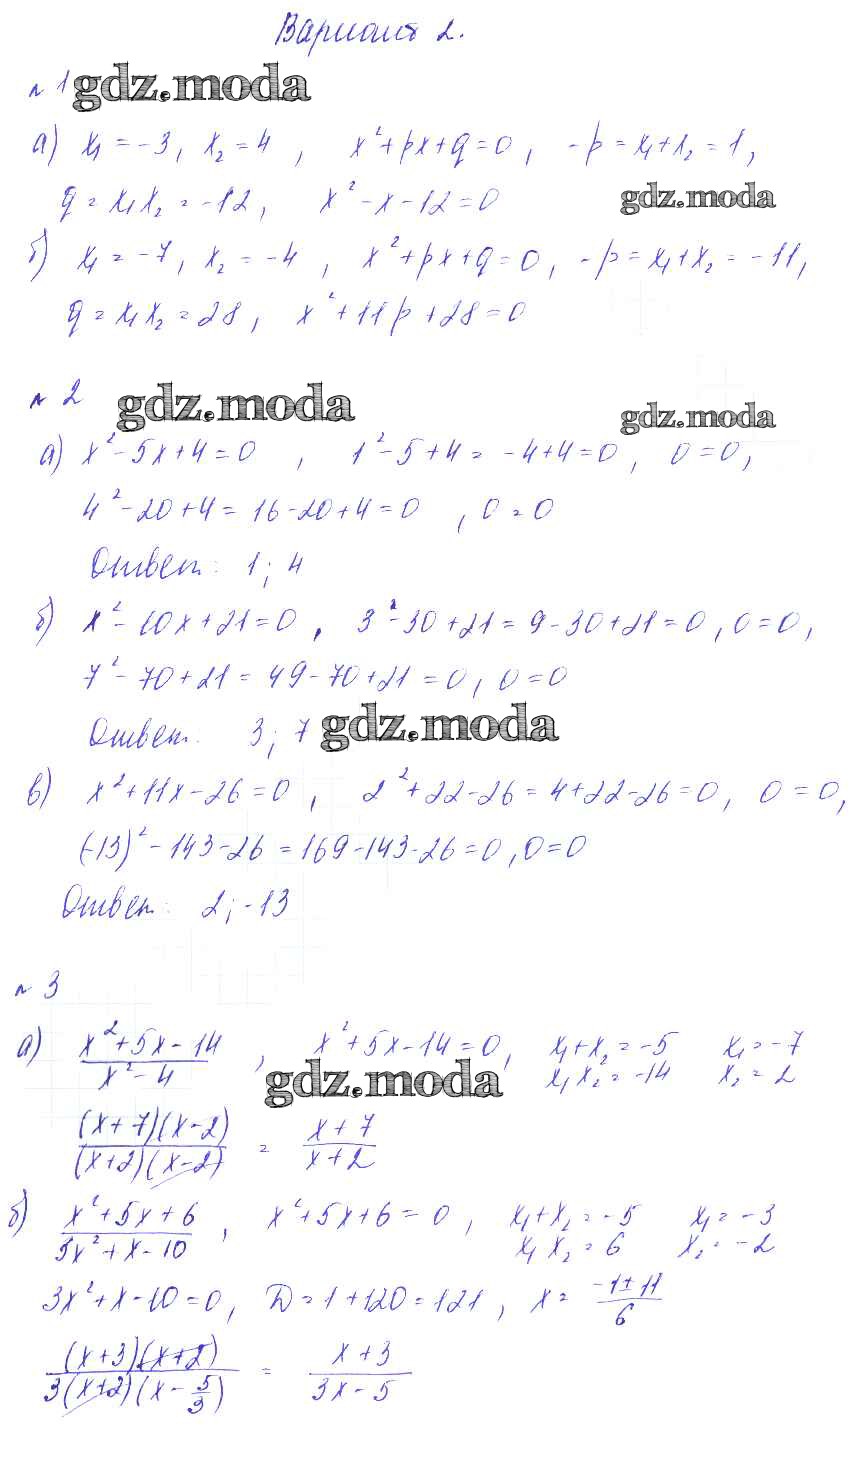 Вариант 2.
№ 1 gdz.moda
а) x₁ = -3, x₂ = 4 , x² + px + q = 0 , -p = x₁ + x₂ = 1,
q = x₁x₂ = -12, x² - x - 12 = 0 gdz.moda
б) x₁ = -7, x₂ = -4 , x² + px + q = 0, -p = x₁ + x₂ = -11,
q = x₁x₂ = 28, x² + 11p + 28 = 0
№ 2 gdz.moda gdz.moda
а) x² - 5x + 4 = 0 , 1² - 5 + 4 = -4 + 4 = 0, 0 = 0,
4² - 20 + 4 = 16 - 20 + 4 = 0 , 0 = 0
Ответ: 1; 4
б) x² - 10x + 21 = 0 , 3² - 30 + 21 = 9 - 30 + 21 = 0, 0 = 0,
7² - 70 + 21 = 49 - 70 + 21 = 0, 0 = 0
Ответ: 3; 7 gdz.moda
в) x² + 11x - 26 = 0 , 2² + 22 - 26 = 4 + 22 - 26 = 0, 0 = 0,
(-13)² - 143 - 26 = 169 - 143 - 26 = 0, 0 = 0
Ответ: 2; -13
№ 3
а) (x² + 5x - 14)/(x² - 4) , x² + 5x - 14 = 0, x₁ + x₂ = -5 x₁ = -7
gdz.moda x₁x₂ = -14 x₂ = 2
((x + 7)(x - 2))/((x + 2)(x - 2)) = (x + 7)/(x + 2)
б) (x² + 5x + 6)/(3x² + x - 10) , x² + 5x + 6 = 0 , x₁ + x₂ = -5 x₁ = -3
x₁x₂ = 6 x₂ = -2
3x² + x - 10 = 0, D = 1 + 120 = 121 , x = (-1 ± 11)/6
((x + 3)(x + 2))/(3(x + 2)(x - 5/3)) = (x + 3)/(3x - 5)